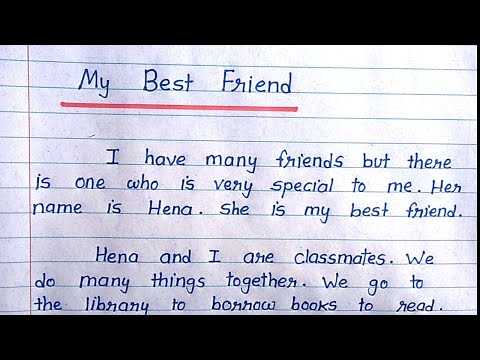 My Best Friend
I have many friends but there
is one who is very special to me. Her
name is Hena. She is my best friend.
Hena and I are classmates. We
do many things together. We go to
the library to borrow books to read.